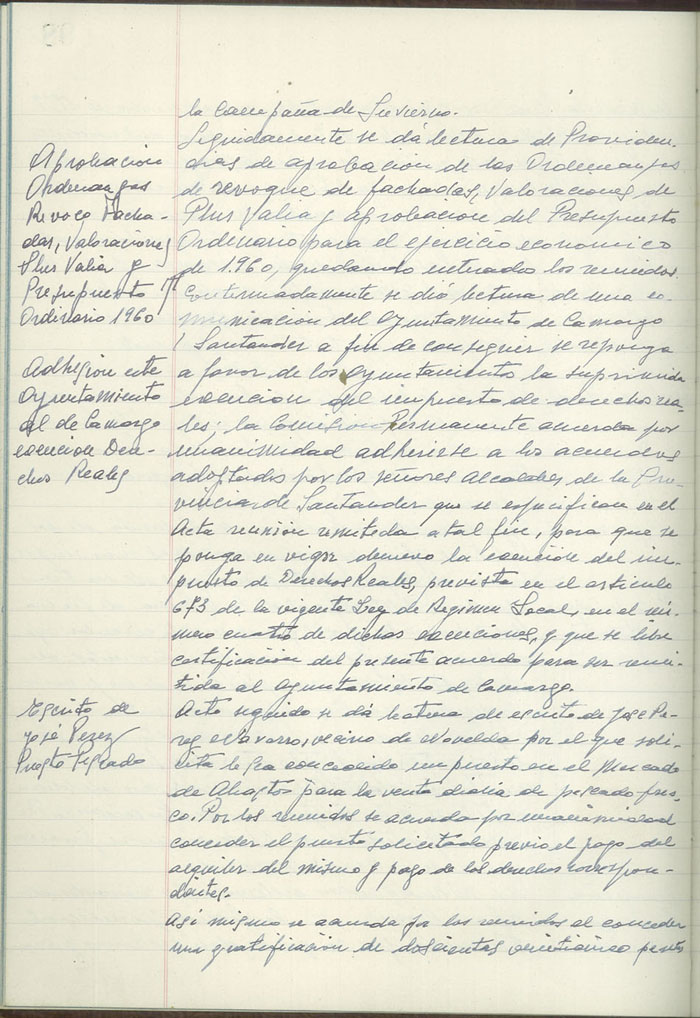 la Campaña de Invierno.
Aprobación
Ordenanzas
Revoco Facha-
das, Valoraciones
Plus Valia y
Presupuesto
Ordinario 1960
Seguidamente se dá lectura de Providen-
cias de aprobación de las Ordenanzas
de revoque de fachadas, Valoraciones de
Plus Valia y aprobación del Presupuesto
Ordinario para el ejercicio economico
de 1.960, quedando enterado los reunidos.
Continuadamente se dió lectura de una co-
municación del Ayuntamiento de Camargo
/ Santander a fin de conseguir se reponga
Adhesión este
Ayuntamiento
al de Camargo
exención Dere-
chos Reales
a favor de los Ayuntamiento la suprimida
exención del impuesto de derechos rea-
les; la Comision Permanente acuerda por
unanimidad adherirse a los acuerdos
adoptados por los señores Alcaldes de la Pro-
vincia de Santander que se especifican en el
Acta reunión remitida a tal fin, para que se
ponga en vigor denuevo la exención del im-
puesto de Derechos Reales, prevista en el articulo
673 de la vigente Ley de Regimen Local, en el nú-
mero cuatro de dichas exenciones, y que se libre
certificación del presente acuerdo para ser remi-
tida al Ayuntamiento de Camargo.
Escrito de
José Perez
Puesto Pescado
Acto seguido se dá lectura de escrito de Jose Pe-
rez Navarro, vecino de Novelda por el que soli-
cita le sea concedido un puesto en el Mercado
de Abastos para la venta diaria de pescado fres-
co. Por los reunidos se acuerda por unanimidad
conceder el puesto solicitado previo el pago del
alquiler del mismo y pago de los derechos correspon-
dientes.
Asi mismo se acuerda por los reunidos el conceder
una gratificación de doscientas veinticinco pesetas